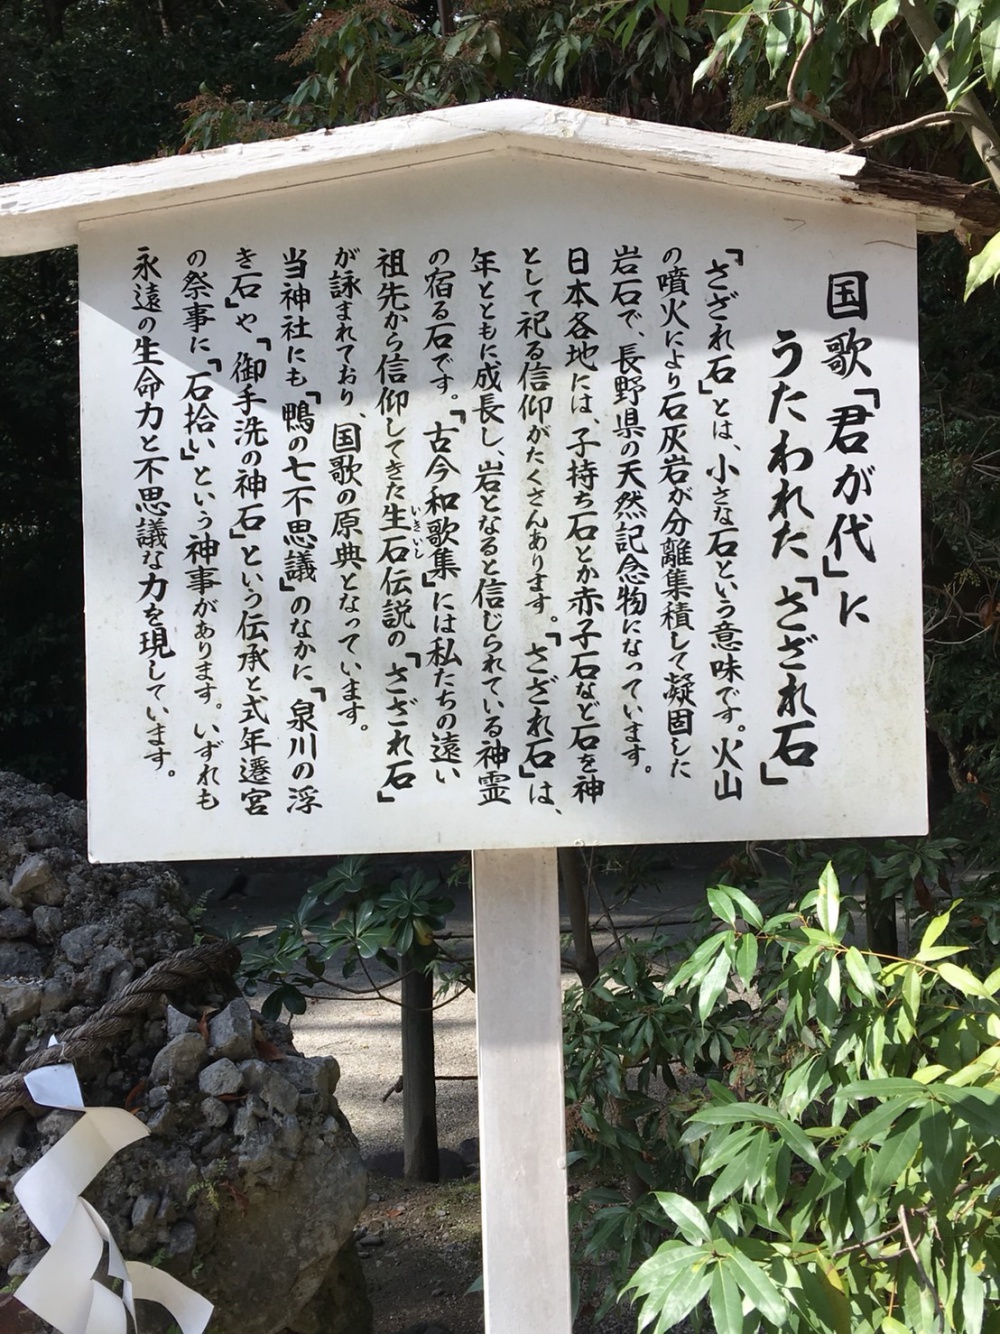 国歌「君が代」に
うたわれた「さざれ石」
「さざれ石」とは、小さな石という意味です。火山
の噴火により石灰岩が分離集積して凝固した
岩石で、長野県の天然記念物になっています。
日本各地には、子持ち石とか赤子石など石を神
として祀る信仰がたくさんあります。「さざれ石」は、
年とともに成長し、岩となると信じられている神霊
の宿る石です。「古今和歌集」には私たちの遠い
祖先から信仰してきた生石伝説の「さざれ石」
いきいし
が詠まれており、国歌の原典となっています。
当神社にも「鴨の七不思議」のなかに「泉川の浮
き石」や「御手洗の神石」という伝承と式年遷宮
の祭事に「石拾い」という神事があります。いずれも
永遠の生命力と不思議な力を現しています。